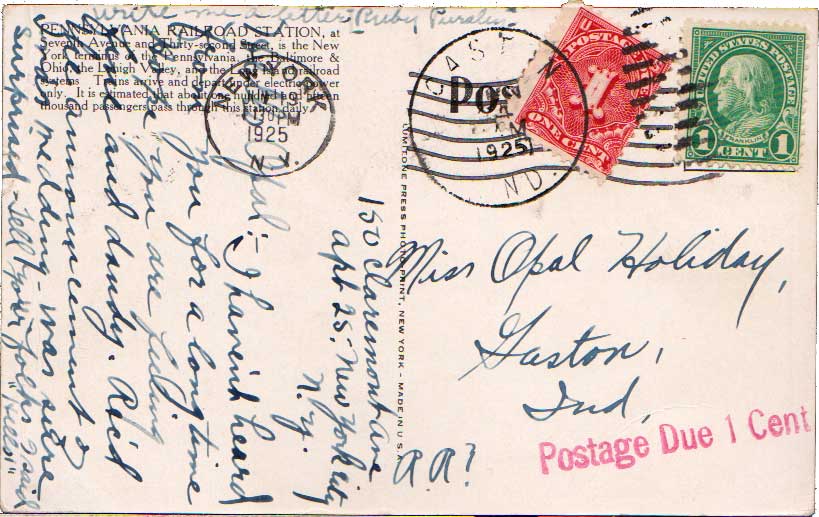 write me a letter. Ruby Purslin.
PENNSYLVANIA RAILROAD STATION, at
Seventh Avenue and Thirty-second Street, is the New
York terminus of the Pennsylvania, the Baltimore &
Ohio, the Lehigh Valley, and the Long Island railroad
systems. Trains arrive and depart under electric power
only. It is estimated that about one hundred and fifteen
thousand passengers pass through this station daily.
NEW YORK
1925
N.Y.
GASTON
1925
IND.
UNITED STATES POSTAGE
FRANKLIN
1 CENT 1
POSTAGE
1
ONE CENT
150 Claremont Ave
apt 25. New York City
N.Y.
Opal:- I haven't heard
from you for a long time
hope you are feeling
fine and dandy. Rec'd
announcement of
wedding - was sure
surprised - Tell your folks I said
"Hello"
LUMITONE PRESS PHOTOPRINT, NEW YORK - MADE IN U.S.A.
Miss Opal Holiday,
Gaston,
Ind,
R.R.?
Postage Due 1 Cent